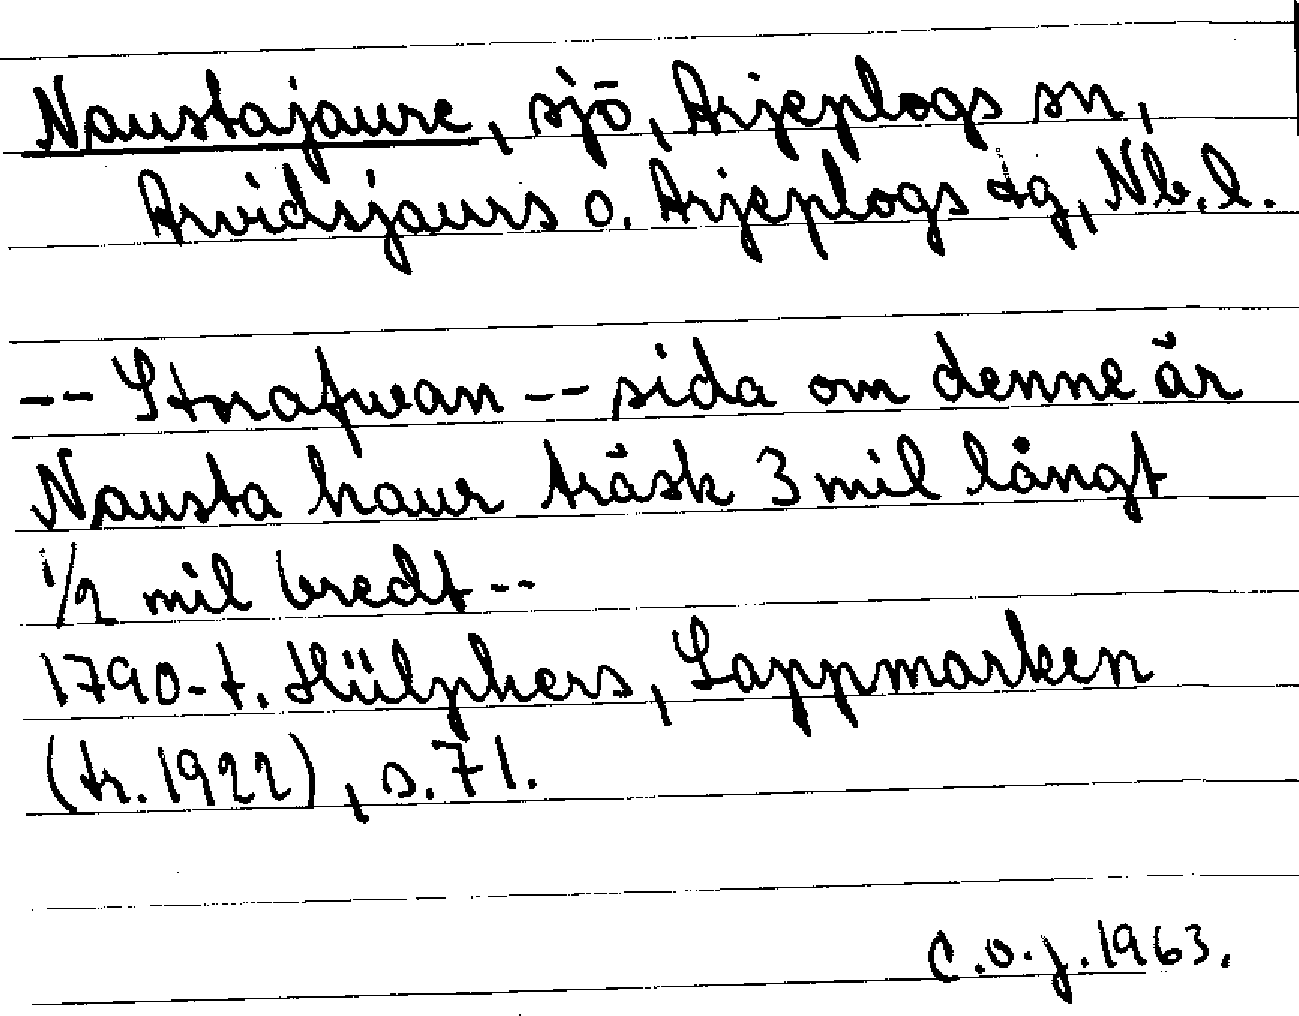 Naustajaure, sjö, Arjeplogs sn,
Arvidsjaurs o. Arjeplogs tg, Nb.l.
-- Storafwan -- sida om denne är
Nausta haur träsk 3 mil långt
1/2 mil bredt --
1790-t. Hülphers, Lappmarken
(tr. 1922), s. 71.
C.O.J. 1963.